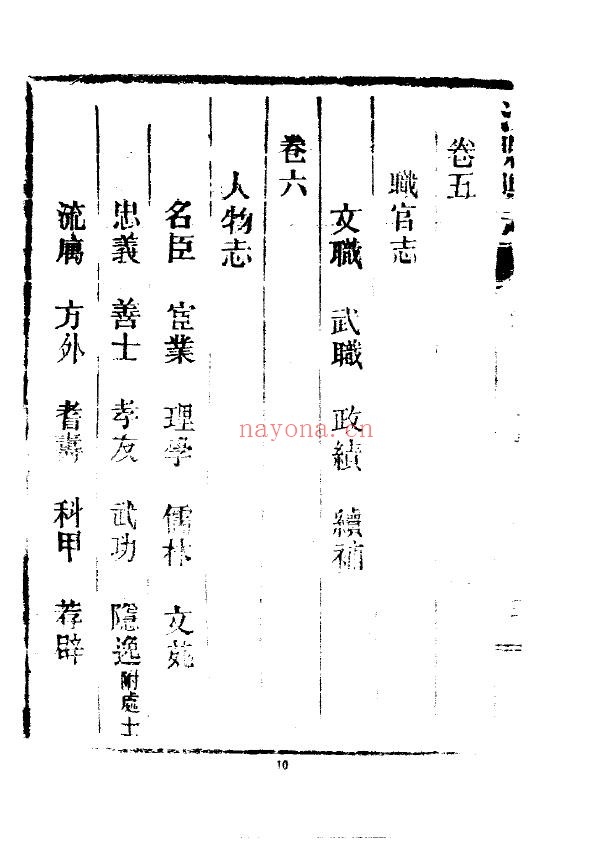 卷五
職官志
文職 武職 政績 續補
卷六
人物志
名臣 宦業 理學 儒林 文苑
忠義 善士 孝友 武功 隱逸附處士
流寓 方外 耆壽 科甲 荐辟
nayona.cn
10